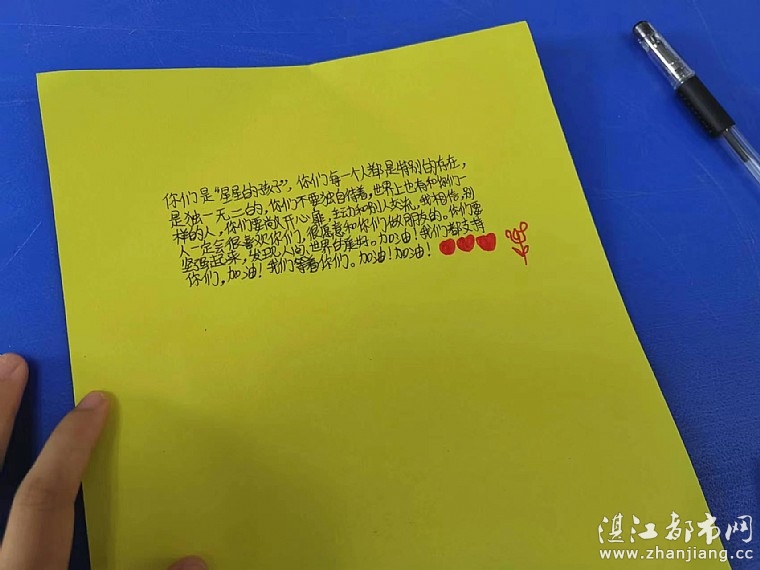 你们是“星星的孩子”，你们每一个人都是特别的存在，
是独一无二的，你们不要独自待着，世界上也有和你们一
样的人，你们要敞开心扉，主动和别人交流，我相信，别
人一定会很喜欢你们，很愿意和你们做朋友的。你们要
坚强起来，发现人间、世界的美好。加油！我们都支持
你们，加油！我们等着你们。加油！加油！
湛江都市网
www.zhanjiang.cc